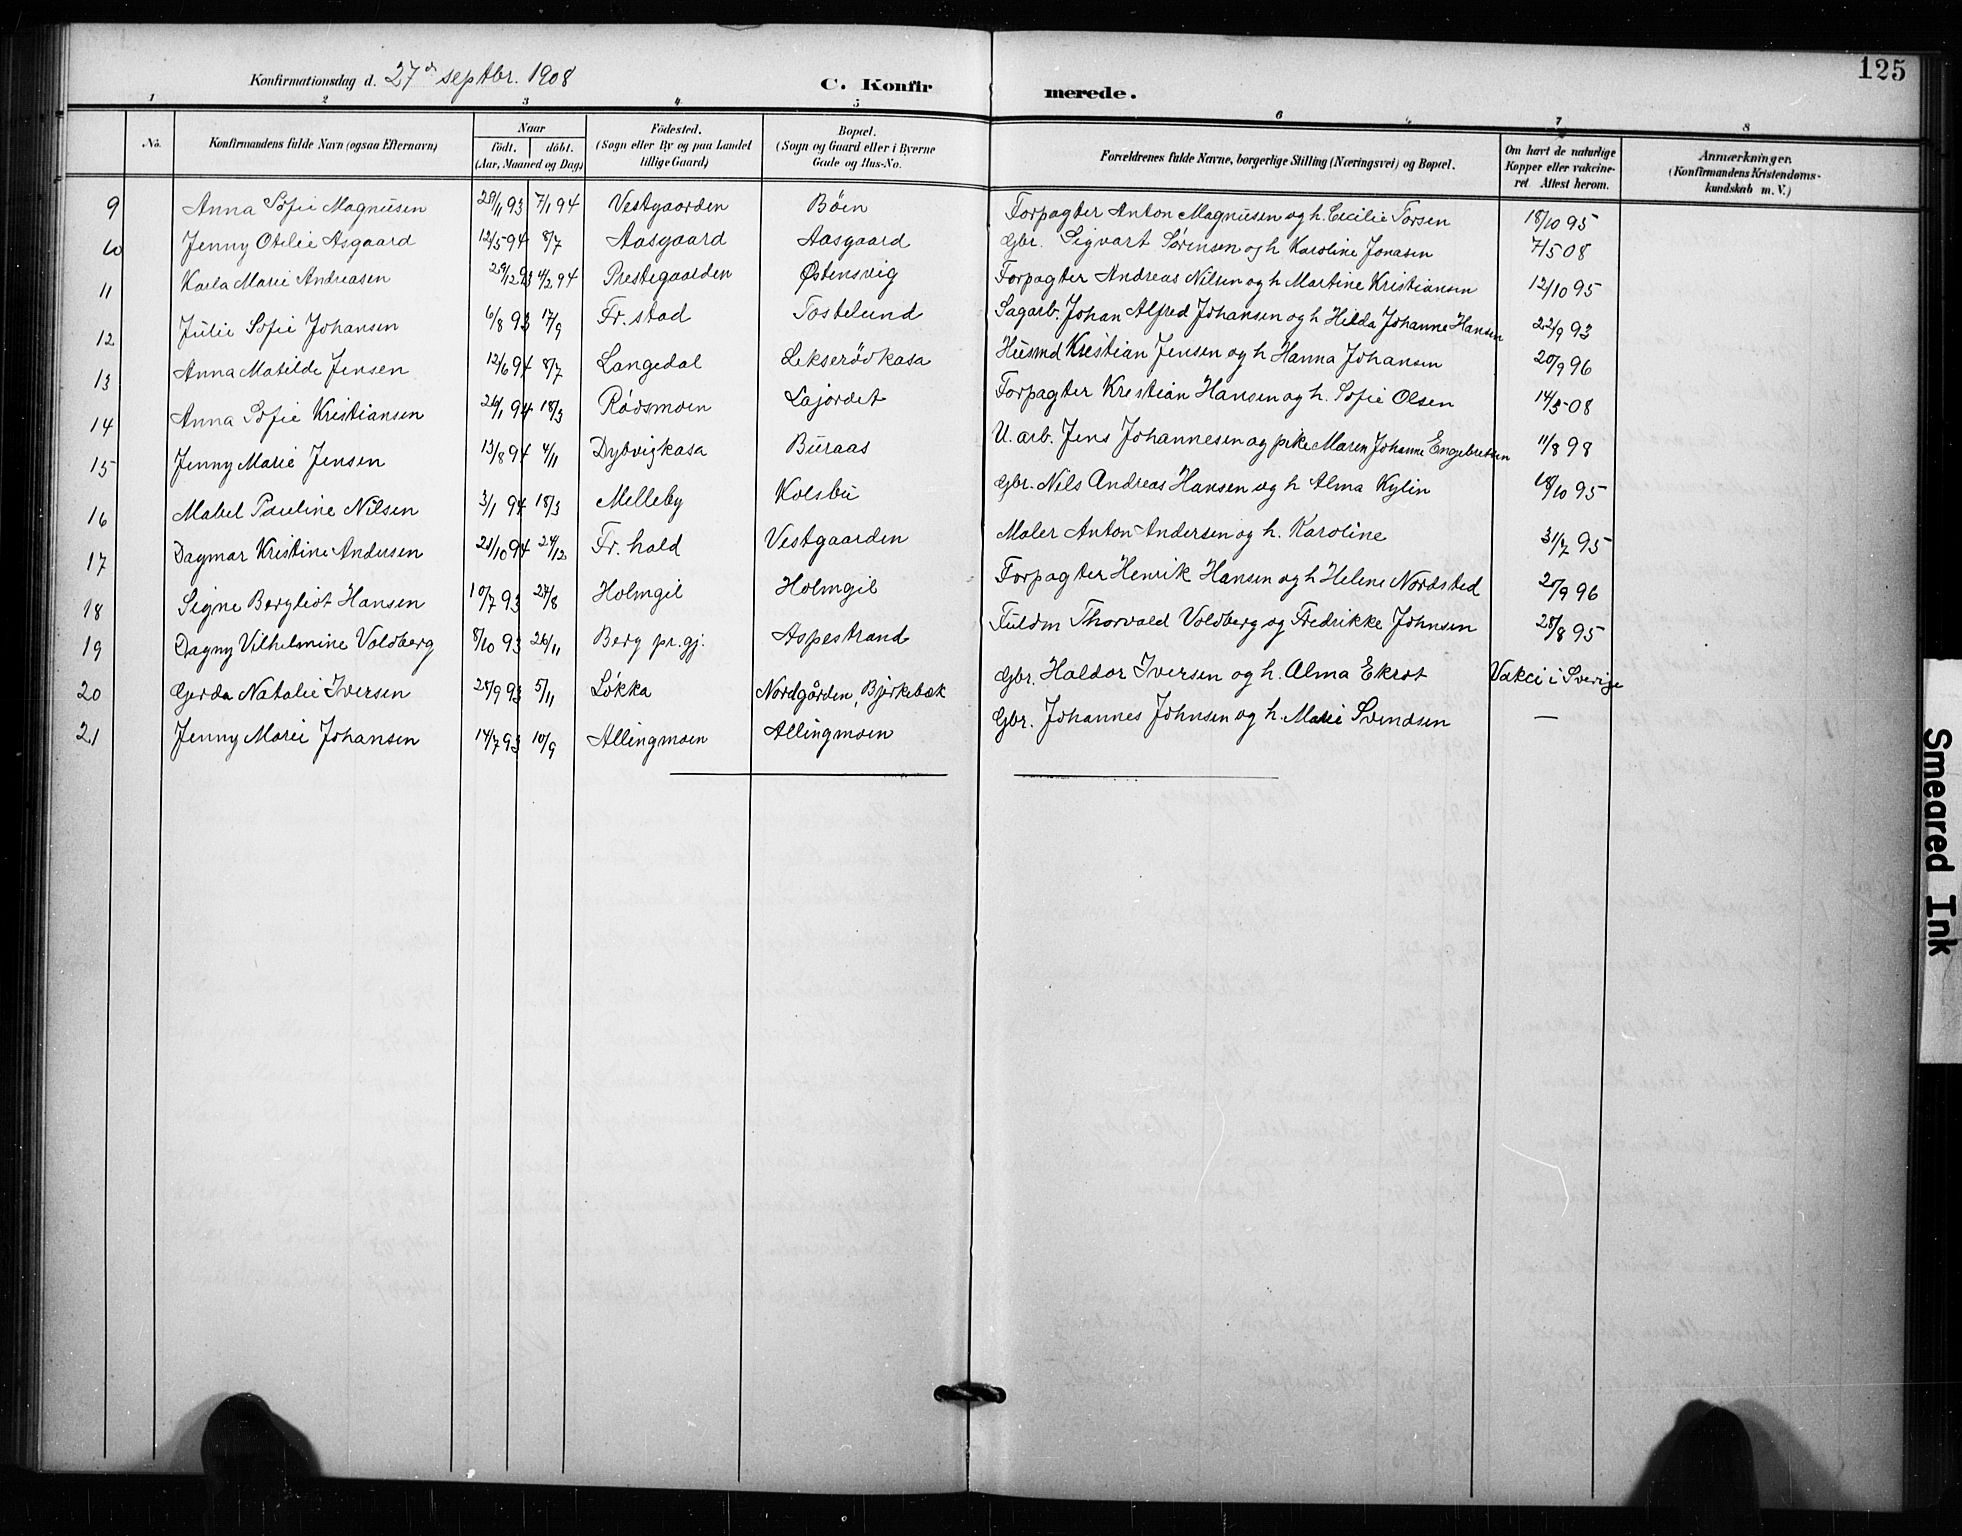 125
Konfirmationsdag d. 27de septbr. 1908 C. Konfirmerede.
1 2 3 4 5 6 7 8
No. Konfirmandens fulde Navn (ogsaa Efternavn) Naar födt. döbt. (Aar, Maaned og Dag) Födested. (Sogn eller By og paa Landet tillige Gaard) Bopæl. (Sogn og Gaard eller i Byerne Gade og Hus-No. Forældrenes fulde Navne, borgerlige Stilling (Næringsvei) og Bopæl. Om havt de naturlige Kopper eller vakcineret. Attest herom. Anmærkninger. (Konfirmandens Kristendomskundskab m. V.)
9 Anna Sofie Magnusen 7/1 94 Vestgaarden Böen Forpagter Anton Magnusen og h. Cecilie Torsen 18/10 95
10 Jenny Otilie Asgaard 12/5 94 8/7 Aasgaard Aasgaard Gbr. Sigvart Sörensen og h Karoline Jonasen 7/5 08
11 Karla Marie Andreasen 29/12 93 4/2 94 Prestegaarden Østensvig Forpagter Andreas Nilsen og h Martine Kristiansen 12/10 95
12 Julie Sofie Johansen 6/8 93 17/9 Fr. stad Tostelund Sagarb. Johan Alfred Johansen og h Hilda Johanne Hansen 22/9 93
13 Anna Matilde Jensen 12/6 94 8/7 Langedal Lekserödkasa Husmd Kristian Jensen og h Hanna Johansen 20/9 96
14 Anna Sofie Kristiansen 26/1 94 18/3 Rødsmoen Lajordet Forpagter Kristian Hansen og h. Sofie Olsen 14/5 08
15 Jenny Marie Jensen 13/8 94 4/11 Dybvigkasa Buraas U. arb. Jens Johannesen og pike Maren Johanne Engebretsen 11/8 98
16 Mabel Pauline Nilsen 3/1 94 18/3 Melleby Kolsbu Gbr. Nils Andreas Hansen og h Alma Kylin 18/10 95
17 Dagmar Kristine Andersen 21/10 94 24/12 Fr. hald Vestgaarden Maler Anton Andersen og h. Karoline 31/7 95
18 Signe Bergliot Hansen 10/7 93 27/8 Holmgil Holmgil Forpagter Henrik Hansen og h Helene Nordsted 20/9 96
19 Dagny Vilhelmine Voldberg 8/10 93 26/11 Berg pr.gj. Aspestrand Fuldm Thorvald Voldberg og Fredrikke Johnsen 28/8 95
20 Gerda Natalie Iversen 93 5/11 Løkka Nordgården, Bjørkebæk Gbr. Haldor Iversen og h. Alma Ekrot Vakci i Sverige
21 Jenny Marie Johansen 14/7 93 10/9 Allingmoen Allingmoen Gbr. Johannes Johnsen og h. Marie Svendsen —
Smeared Ink